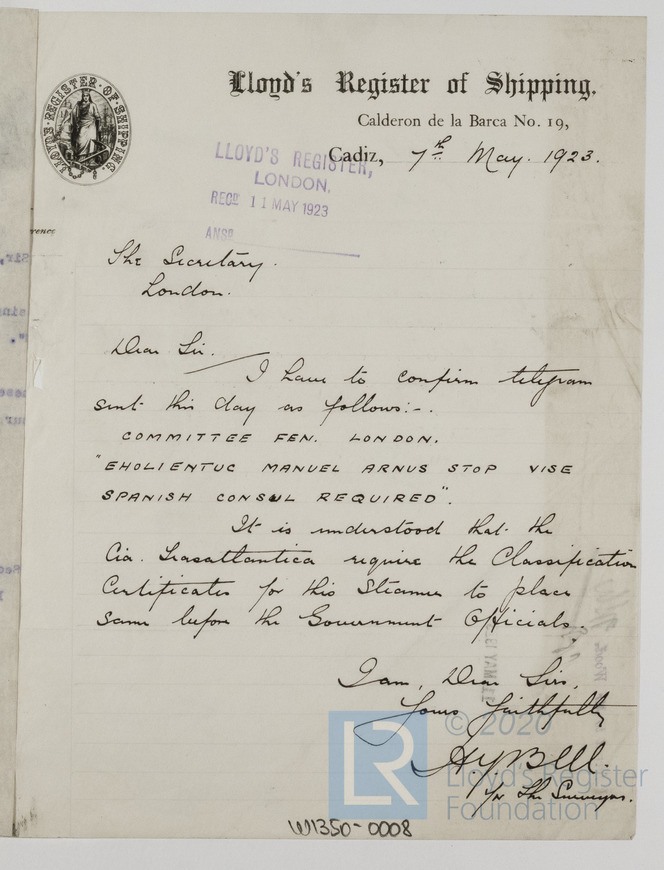 LLOYD'S REGISTER OF SHIPPING.
Lloyd's Register of Shipping.
Calderon de la Barca No. 19,
Cadiz, 7th May. 1923.
LLOYD'S REGISTER,
LONDON.
RECD 11 MAY 1923
ANSD
The Secretary.
London.
Dear Sir.
I have to confirm telegram
sent this day as follows:-.
COMMITTEE FEN. LONDON.
"EHOLIENTUC MANUEL ARNUS STOP VISE
SPANISH CONSUL REQUIRED".
It is understood that the
Cia. Trasatlantica require the Classification
Certificates for this Steamer to place
same before the Government Officials.
I am, Dear Sirs,
Yours faithfully
Hy Bell.
for The Surveyors.
© 2020
LR
Lloyd's Register
Foundation
W1350-0008